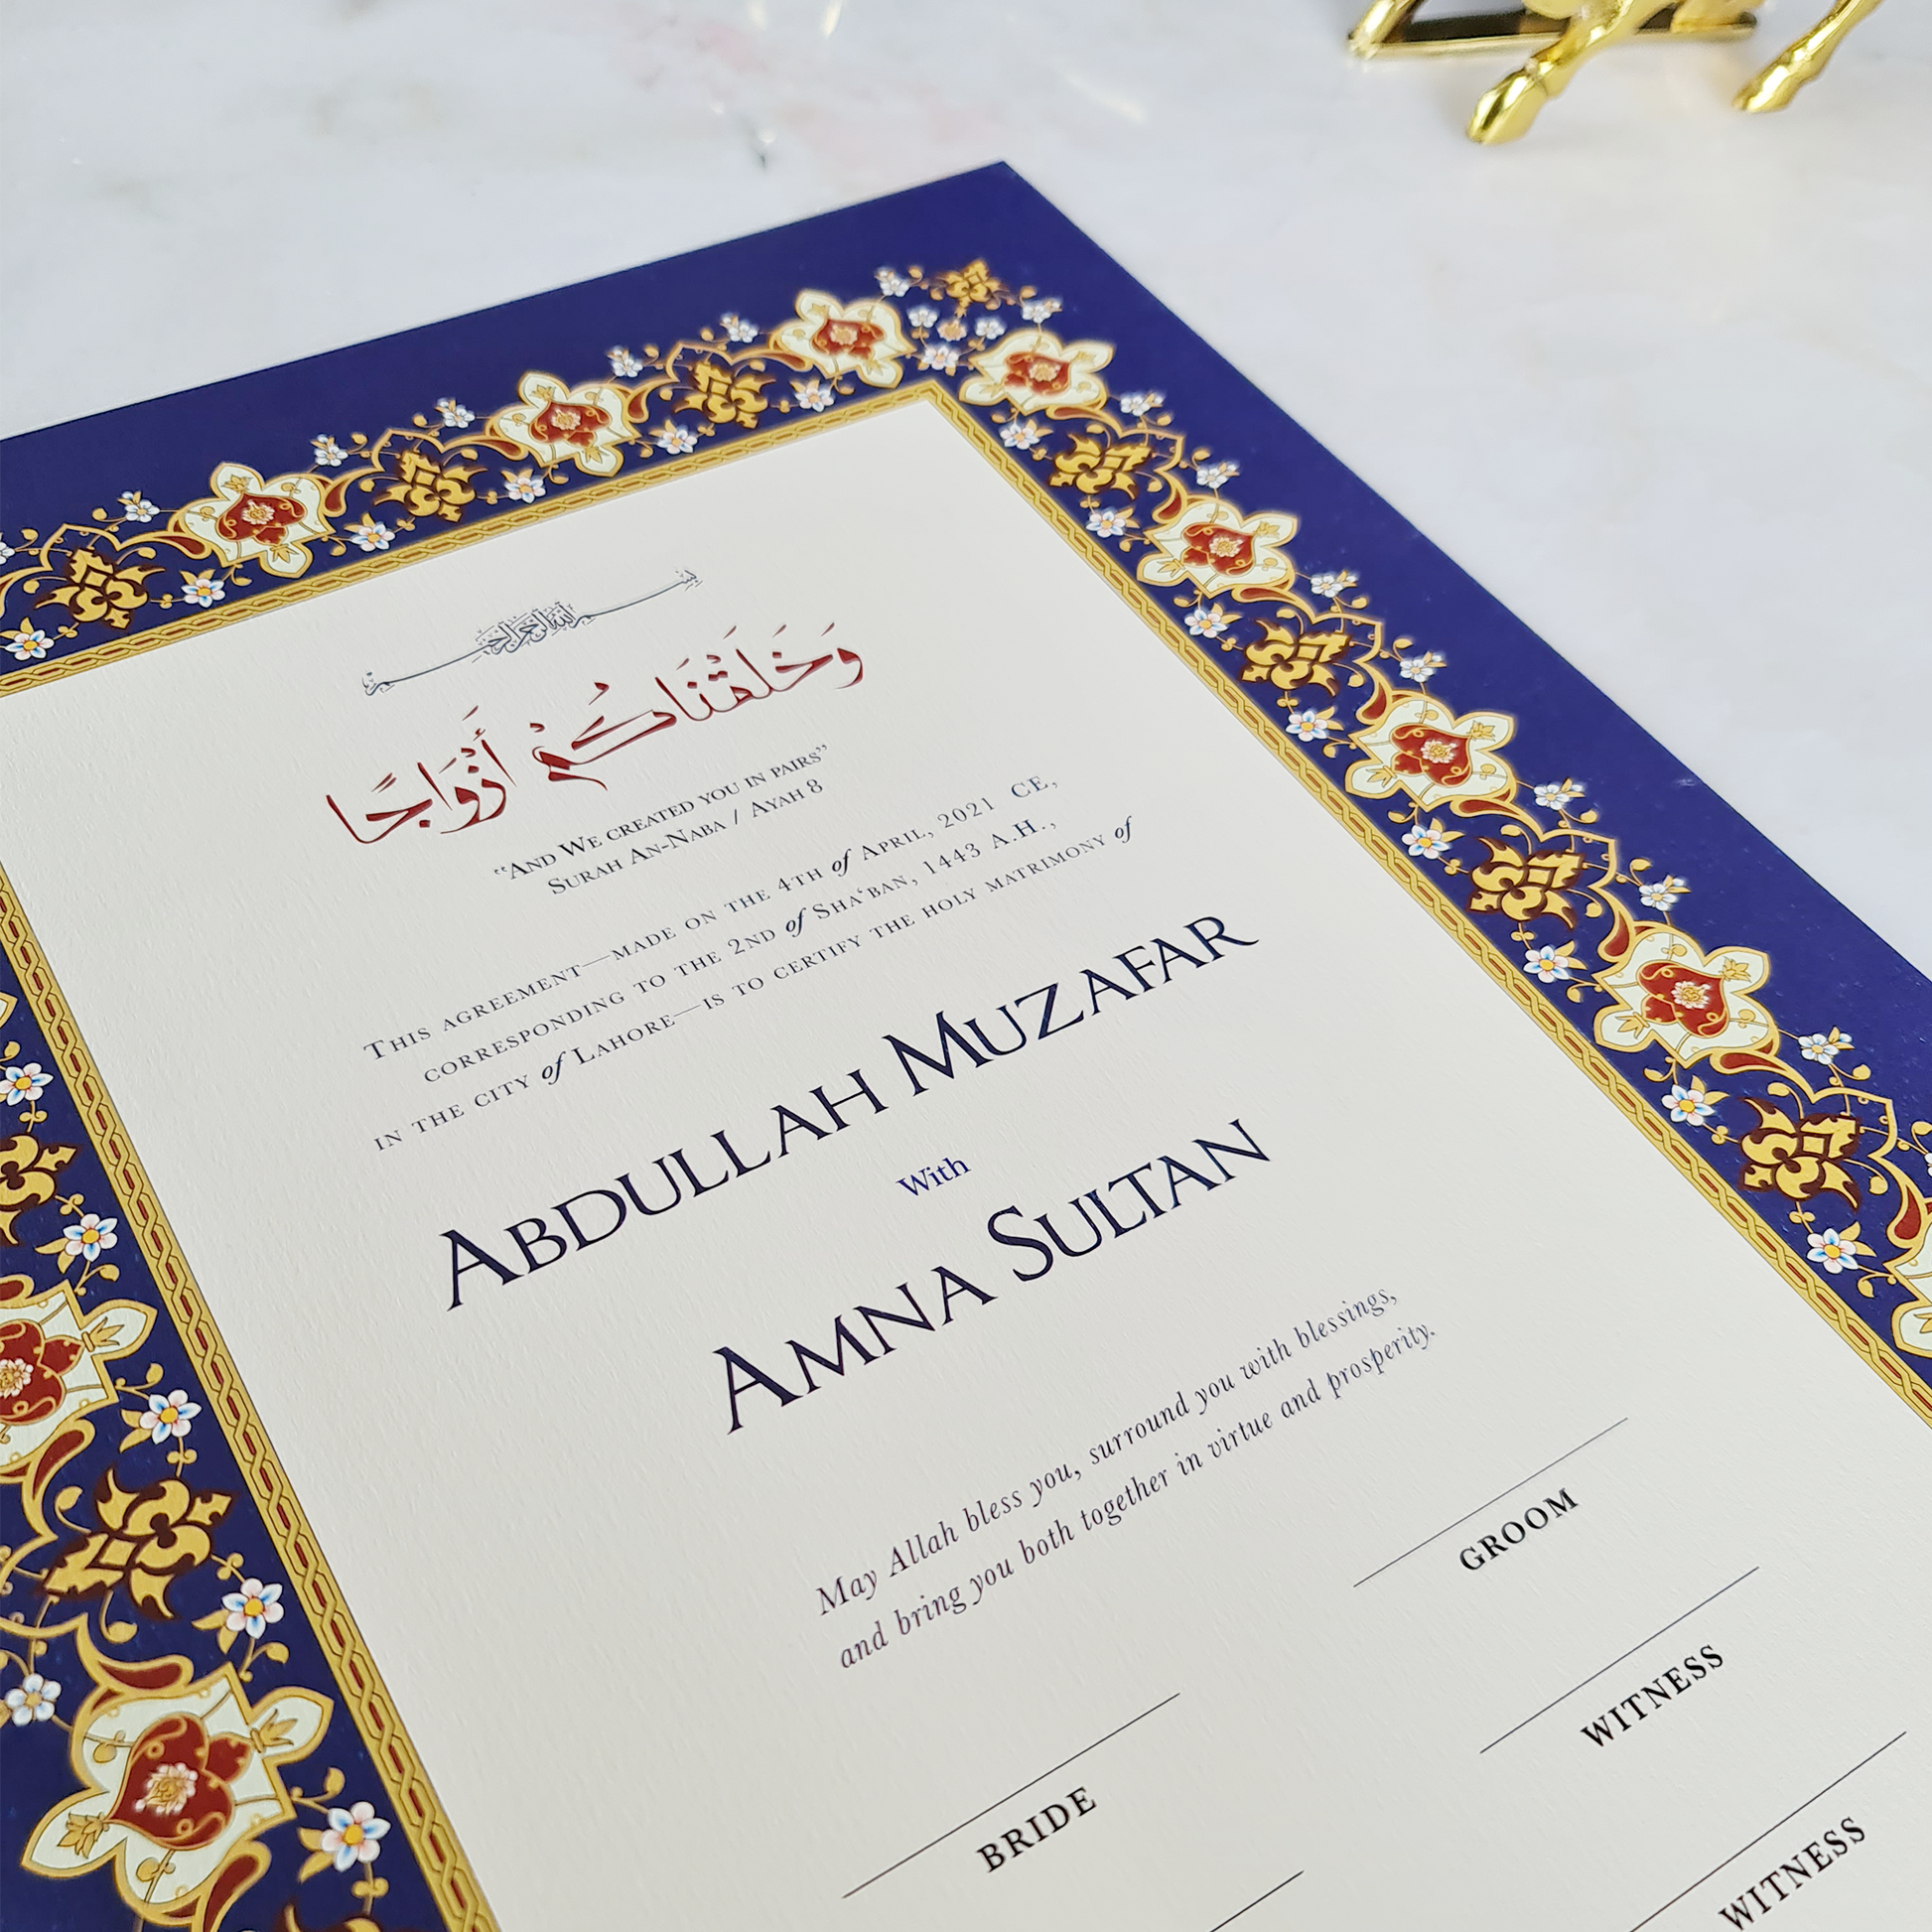 بسم الله الرحمن الرحيم
وَخَلَقْنَاكُمْ أَزْوَاجًا
“And We created you in pairs”
Surah An-Naba / Ayah 8
This agreement—made on the 4th of April, 2021 CE,
corresponding to the 2nd of Shaʻban, 1443 A.H.,
in the city of Lahore—is to certify the holy matrimony of
Abdullah Muzafar
With
Amna Sultan
May Allah bless you, surround you with blessings,
and bring you both together in virtue and prosperity.
GROOM
WITNESS
BRIDE
WITNESS